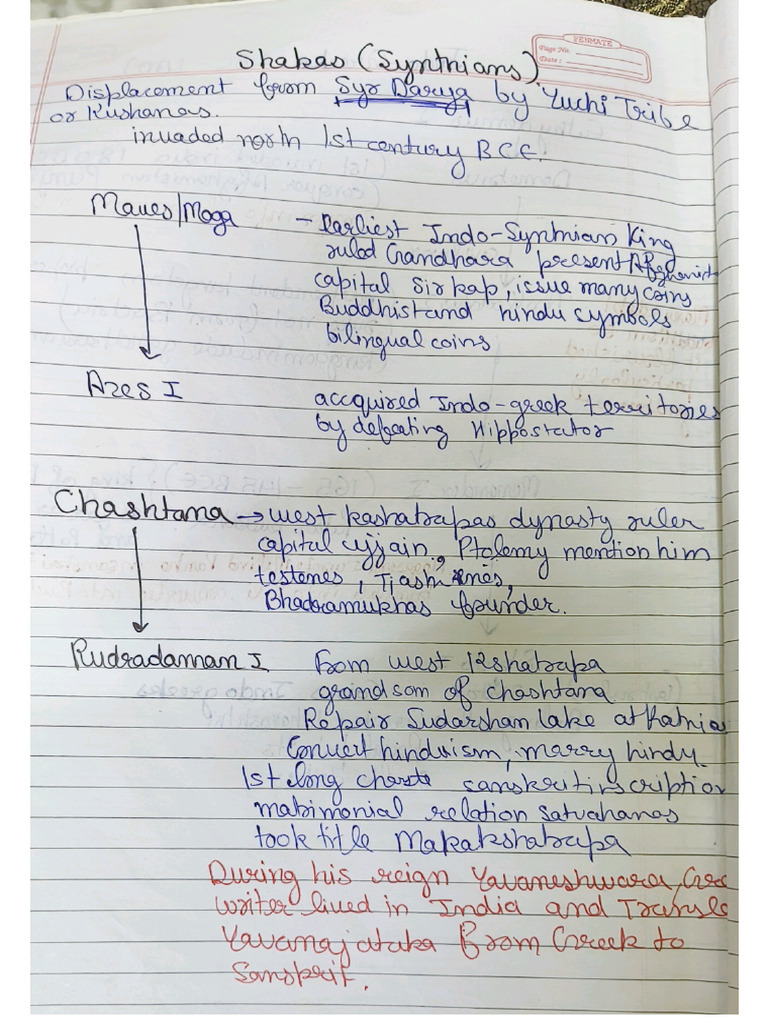 PENMATE
Page No.
Date:
Shakas (Synthians)
Displacement from Syr Darya by Yuchi Tribe
or Kushanas.
invaded north 1st century BCE.
Maues/Moga - Earliest Indo-Synthian King
ruled Gandhara present Afghanist
capital Sirkap, issue many coins
Buddhist and hindu symbols
bilingual coins
Azes I accquired Indo-greek territories
by defeating Hippostator
Chashtana → west kashatrapas dynasty ruler
capital ujjain., Ptolemy mention him
testenes, Tiasthenes,
Bhadramukhas founder.
Rudradaman I From west Kshatrapa
grandson of chashtana
Repair Sudarshan lake at Kathia
Convert hinduism, marry hindu.
1st long chaste sanskrit inscription
matrimonial relation Satvahanas
took title Makakshatrapa
During his reign Yavaneshwara, Gre
writer lived in India and Transla
Yavanajataka From Greek to
Sanskrit.